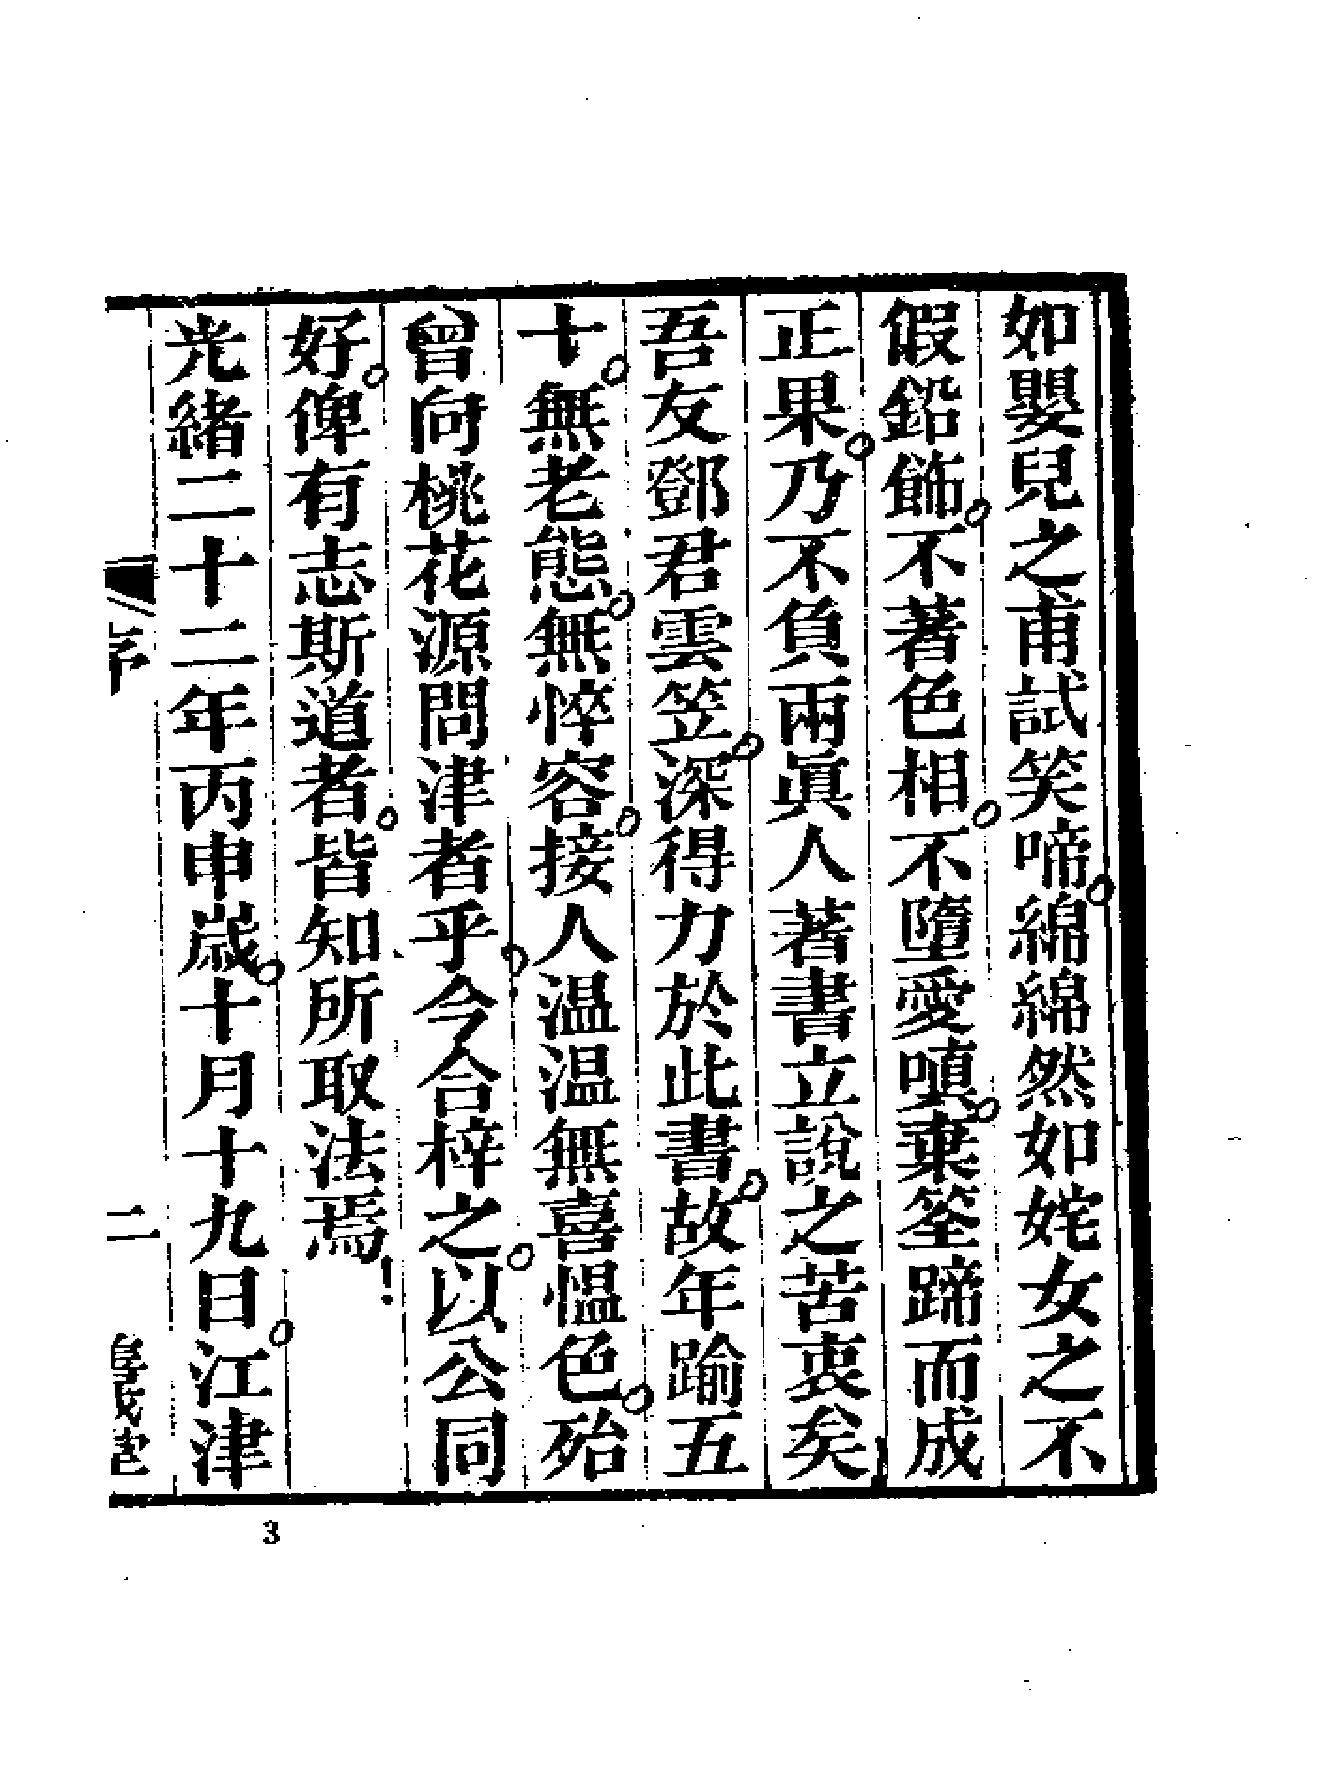 如嬰兒之甫試笑啼。綿綿然如姹女之不
假鉛飾。不著色相。不墮愛嗔。棄筌蹄而成
正果。乃不負兩眞人著書立說之苦衷矣
吾友鄧君雲笠。深得力於此書。故年踰五
十。無老態。無悴容。接人温温無喜愠色。殆
曾向桃花源問津者乎。今合梓之。以公同
好。俾有志斯道者。皆知所取法焉!
光緒二十二年丙申歲。十月十九日。江津
序
二
3